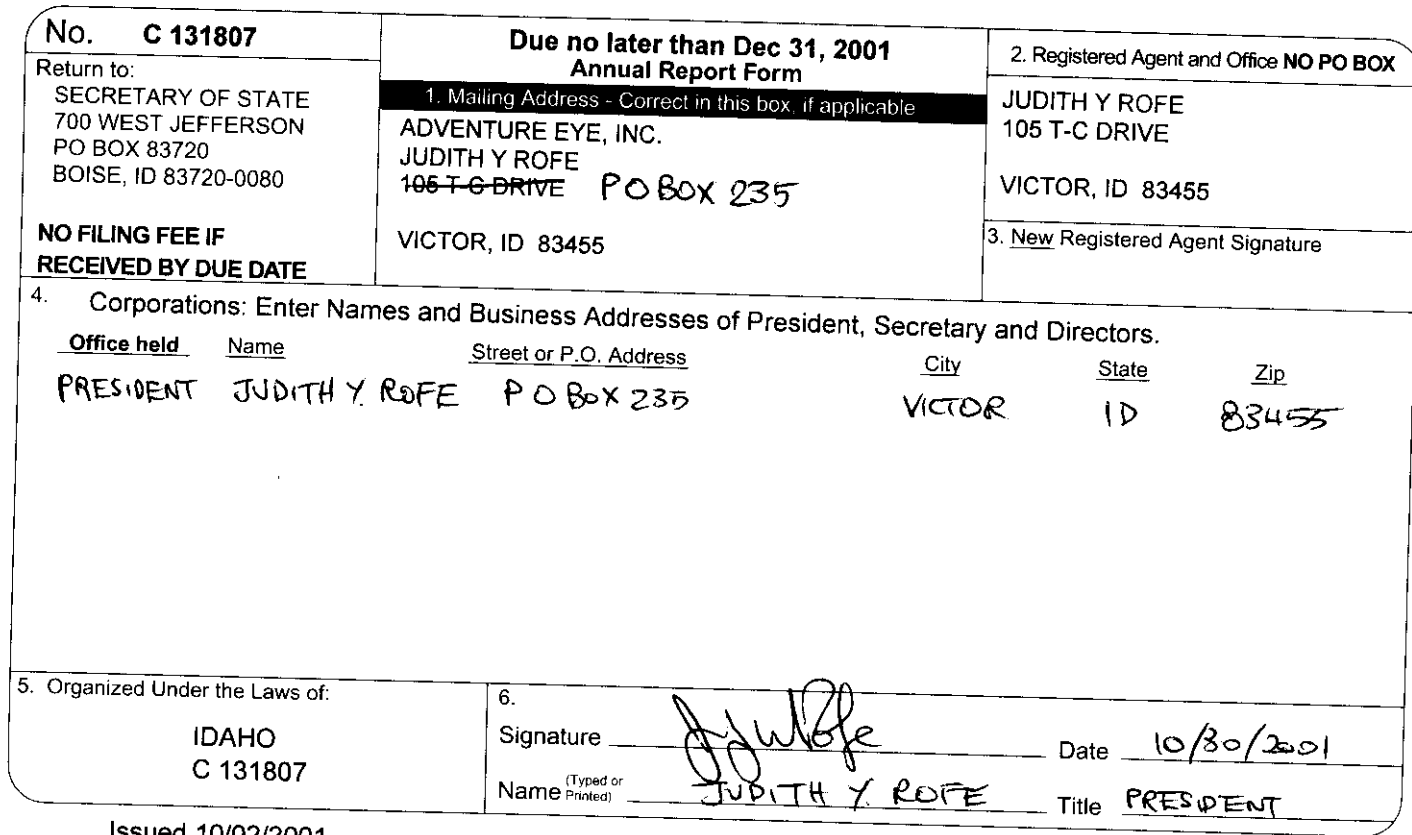 No. C 131807
Return to:
SECRETARY OF STATE
700 WEST JEFFERSON
PO BOX 83720
BOISE, ID 83720-0080
NO FILING FEE IF
RECEIVED BY DUE DATE
Due no later than Dec 31, 2001
Annual Report Form
1. Mailing Address - Correct in this box, if applicable
ADVENTURE EYE, INC.
JUDITH Y ROFE
105 T-C DRIVE PO BOX 235
VICTOR, ID 83455
2. Registered Agent and Office NO PO BOX
JUDITH Y ROFE
105 T-C DRIVE
VICTOR, ID 83455
3. New Registered Agent Signature
4. Corporations: Enter Names and Business Addresses of President, Secretary and Directors.
Office held Name Street or P.O. Address City State Zip
PRESIDENT JUDITH Y. ROFE P O BOX 235 VICTOR ID 83455
5. Organized Under the Laws of:
IDAHO
C 131807
6.
Signature Date 10/30/2001
Name (Typed or Printed) JUDITH Y. ROFE Title PRESIDENT
Issued 10/02/2001